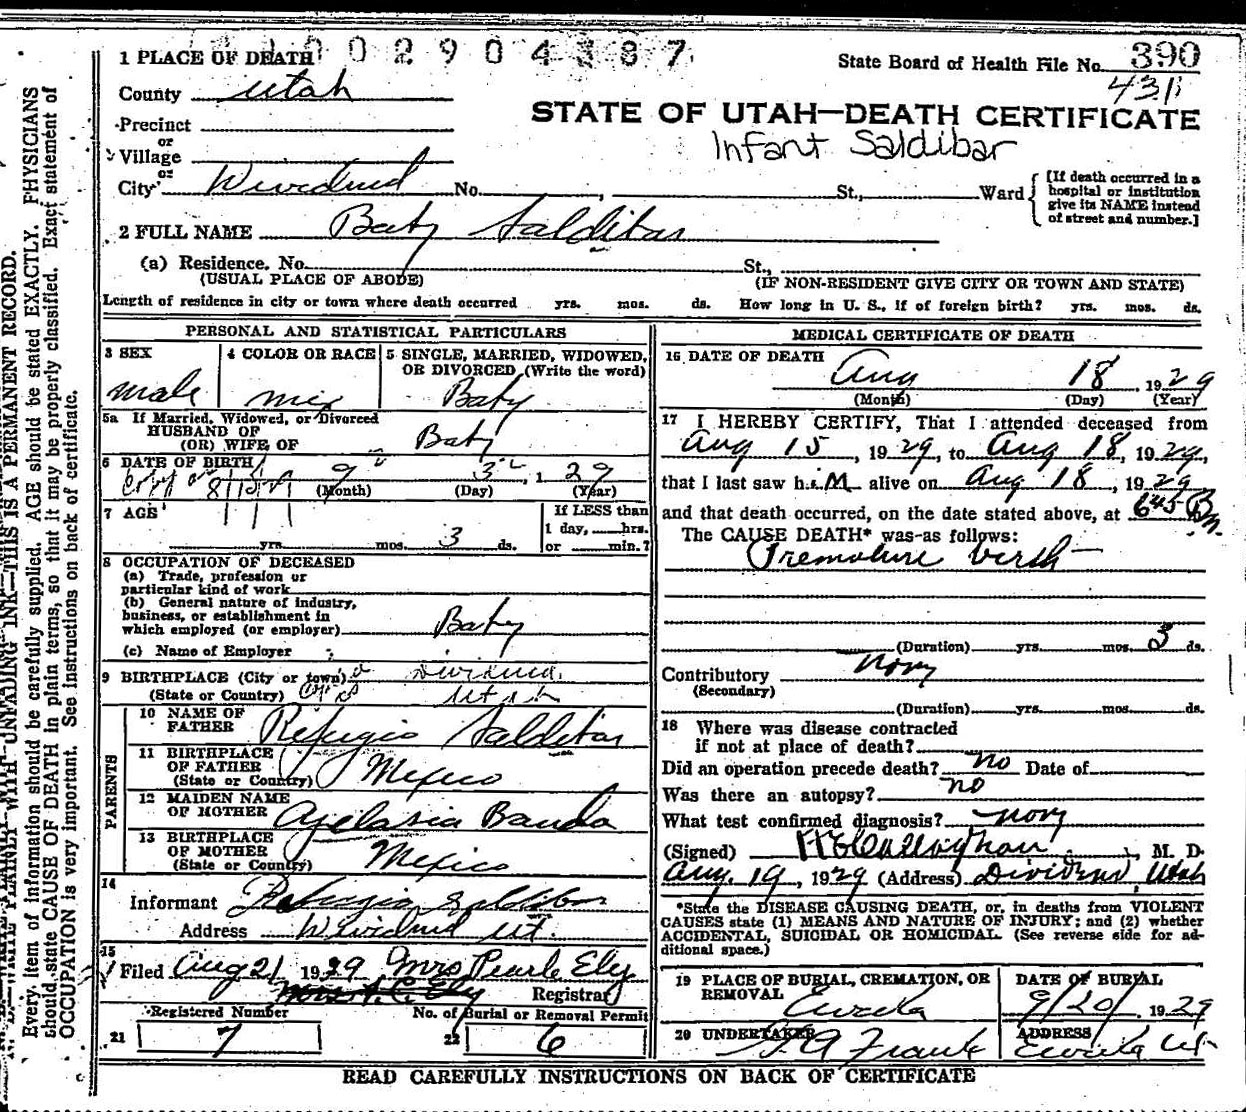 1 PLACE OF DEATH 002904387
State Board of Health File No. 390
County Utah
431
STATE OF UTAH—DEATH CERTIFICATE
Precinct
Infant Saldibar
or
Village
or
City Dividend No. , St., Ward
[If death occurred in a
hospital or institution
give its NAME instead
of street and number.]
2 FULL NAME Baby Saldibar
(a) Residence. No. St.,
(USUAL PLACE OF ABODE) (IF NON-RESIDENT GIVE CITY OR TOWN AND STATE)
Length of residence in city or town where death occurred yrs. mos. ds. How long in U. S., if of foreign birth? yrs. mos. ds.
PERSONAL AND STATISTICAL PARTICULARS
3 SEX 4 COLOR OR RACE 5 SINGLE, MARRIED, WIDOWED,
OR DIVORCED (Write the word)
male mex Baby
5a If Married, Widowed, or Divorced
HUSBAND OF
(OR) WIFE OF Baby
6 DATE OF BIRTH
8/15/29 9 3 1 29
(Month) (Day) (Year)
7 AGE If LESS than
1 day, hrs.
yrs. mos. 3 ds. or min.?
8 OCCUPATION OF DECEASED
(a) Trade, profession or
particular kind of work
(b) General nature of industry,
business, or establishment in
which employed (or employer) Baby
(c) Name of Employer
9 BIRTHPLACE (City or town) Dividend.
(State or Country) Utah
PARENTS
10 NAME OF
FATHER Refugio Saldibar
11 BIRTHPLACE
OF FATHER
(State or Country) Mexico
12 MAIDEN NAME
OF MOTHER Banda
13 BIRTHPLACE
OF MOTHER
(State or Country) Mexico
14
Informant Refugio Saldibar
Address Dividend Ut.
15
Filed Aug 21 1929 Mrs Pearle Ely
Mrs A. C. Ely Registrar
Registered Number No. of Burial or Removal Permit
21 7 22 6
MEDICAL CERTIFICATE OF DEATH
16 DATE OF DEATH
Aug 18, 1929
(Month) (Day) (Year)
17 I HEREBY CERTIFY, That I attended deceased from
Aug 15, 1929, to Aug 18, 1929,
that I last saw him alive on Aug 18, 1929
and that death occurred, on the date stated above, at 645 Pm.
The CAUSE DEATH* was-as follows:
Premature birth
(Duration) yrs. mos. 3 ds.
Contributory
(Secondary)
(Duration) yrs. mos. ds.
18 Where was disease contracted
if not at place of death?
Did an operation precede death? no Date of
Was there an autopsy? no
What test confirmed diagnosis?
(Signed) , M. D.
Aug. 19, 1929 (Address) Dividend, Utah
*State the DISEASE CAUSING DEATH, or, in deaths from VIOLENT
CAUSES state (1) MEANS AND NATURE OF INJURY; and (2) whether
ACCIDENTAL, SUICIDAL OR HOMICIDAL. (See reverse side for ad-
ditional space.)
19 PLACE OF BURIAL, CREMATION, OR
REMOVAL Eureka
DATE OF BURIAL
9/20/1929
20 UNDERTAKER Frank
ADDRESS
Eureka Ut
READ CAREFULLY INSTRUCTIONS ON BACK OF CERTIFICATE
WITH UNFADING INK—THIS IS A PERMANENT RECORD.
Every item of information should be carefully supplied. AGE should be stated EXACTLY. PHYSICIANS
should state CAUSE OF DEATH in plain terms, so that it may be properly classified. Exact statement of
OCCUPATION is very important. See instructions on back of certificate.